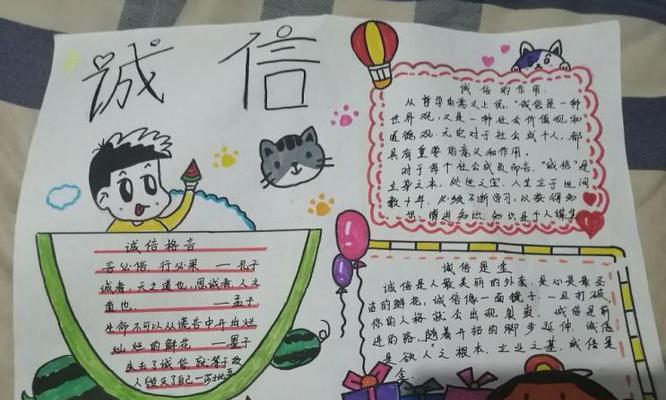 诚信
诚信的作用
从哲学的意义上说，"诚信"是一种
世界观，又是一种社会价值观和
道德观，无论对于社会或个人，都
具有重要的意义和作用。
对于每个社会成员而言，"诚信"是
立身之本，处世之宝。人生立于世间
数十年，必须不断学习，以获得知
识，增进知识，知识是
诚信格言
言必信，行必果 ——孔子
诚者，天之道也，思诚者，人之
道也。 ——孟子
生命不可以从谎言中开出灿
灿烂的鲜花 ——
失去了诚信，就等于敌
人毁灭了自己——莎士比亚
诚信是金
诚信是人最美丽的外套，是心灵最圣
洁的鲜花，诚信像一面镜子，一旦打破，
你的人格就会出现裂痕。诚信是前
进的路，随着开拓的脚步延伸，诚信
是做人之根本，立业之基，诚信是
金。